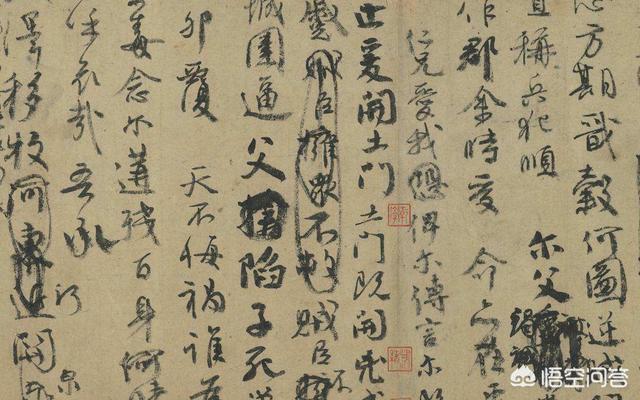 方期戩穀何圖逆
稱兵犯順 尔父
作郡余時受 命亦在平
仁兄愛我恐俾尔傳言尔
止爰開土門土門既開兇威
蹙賊臣擁衆不救賊臣不
城圍逼 父擒陷子死巢
卵覆 天不悔禍誰為
毒念尔遘殘百身何贖
呼哀哉吾承
澤移牧河東近
悟空问答